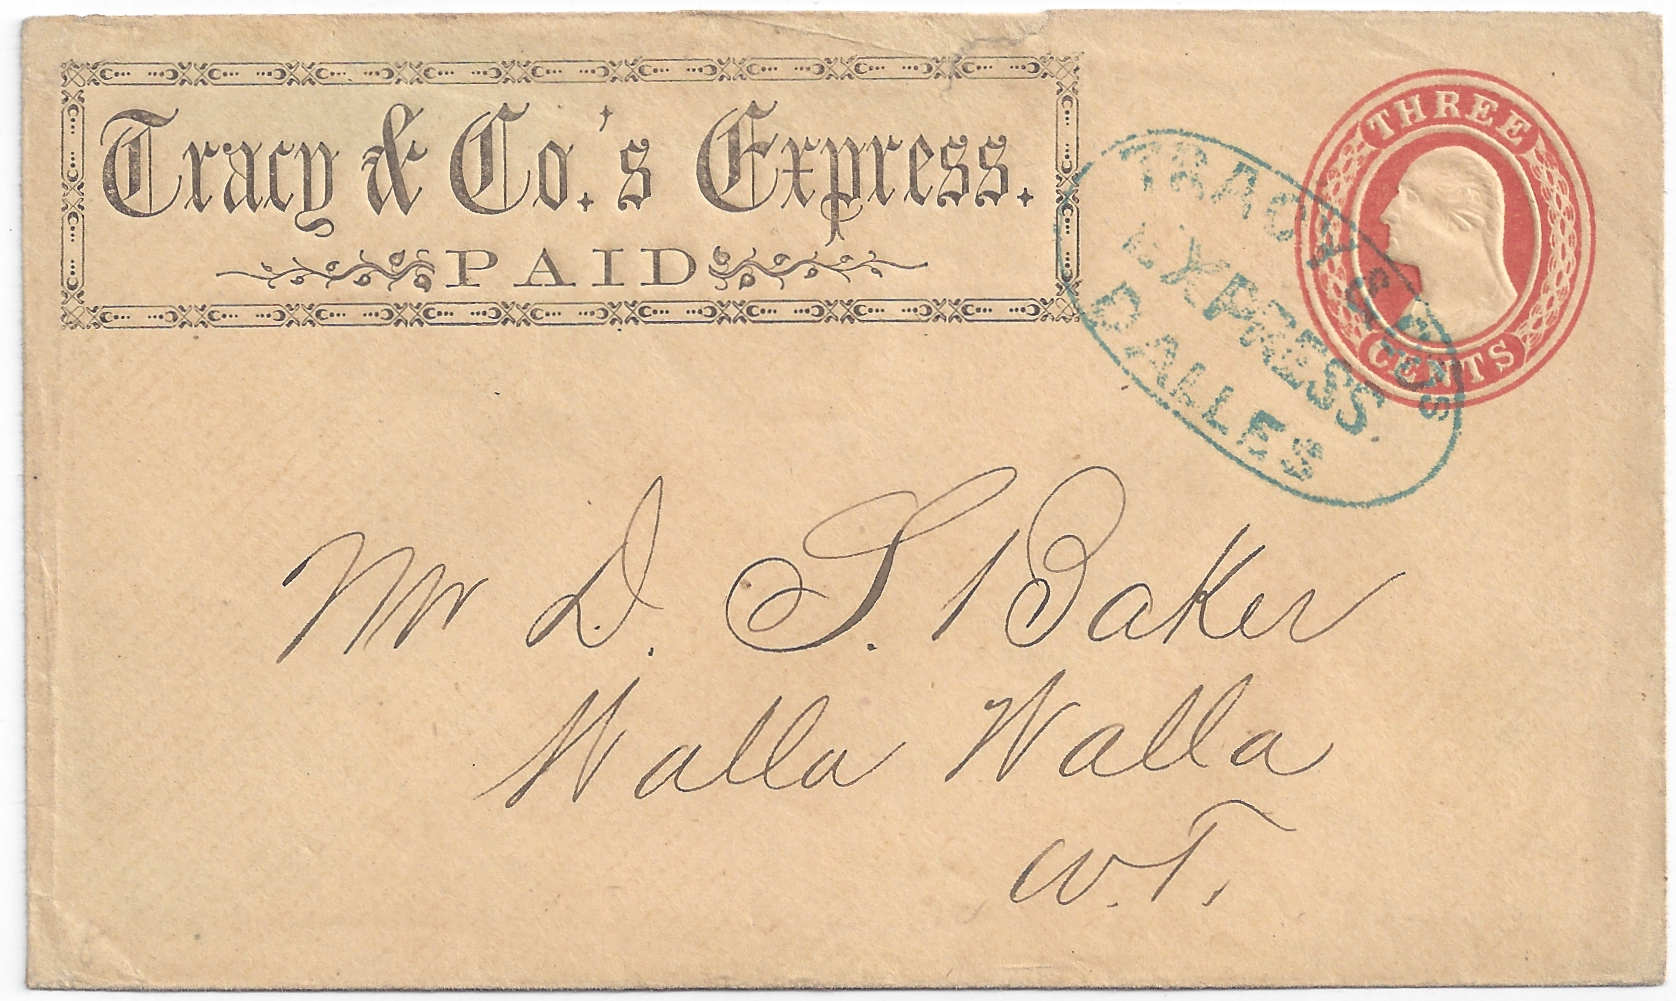 Tracy & Co.'s Express.
PAID
THREE
CENTS
TRACY & CO'S
EXPRESS.
DALLES
Mr D. S. Baker
Walla Walla
W.T.